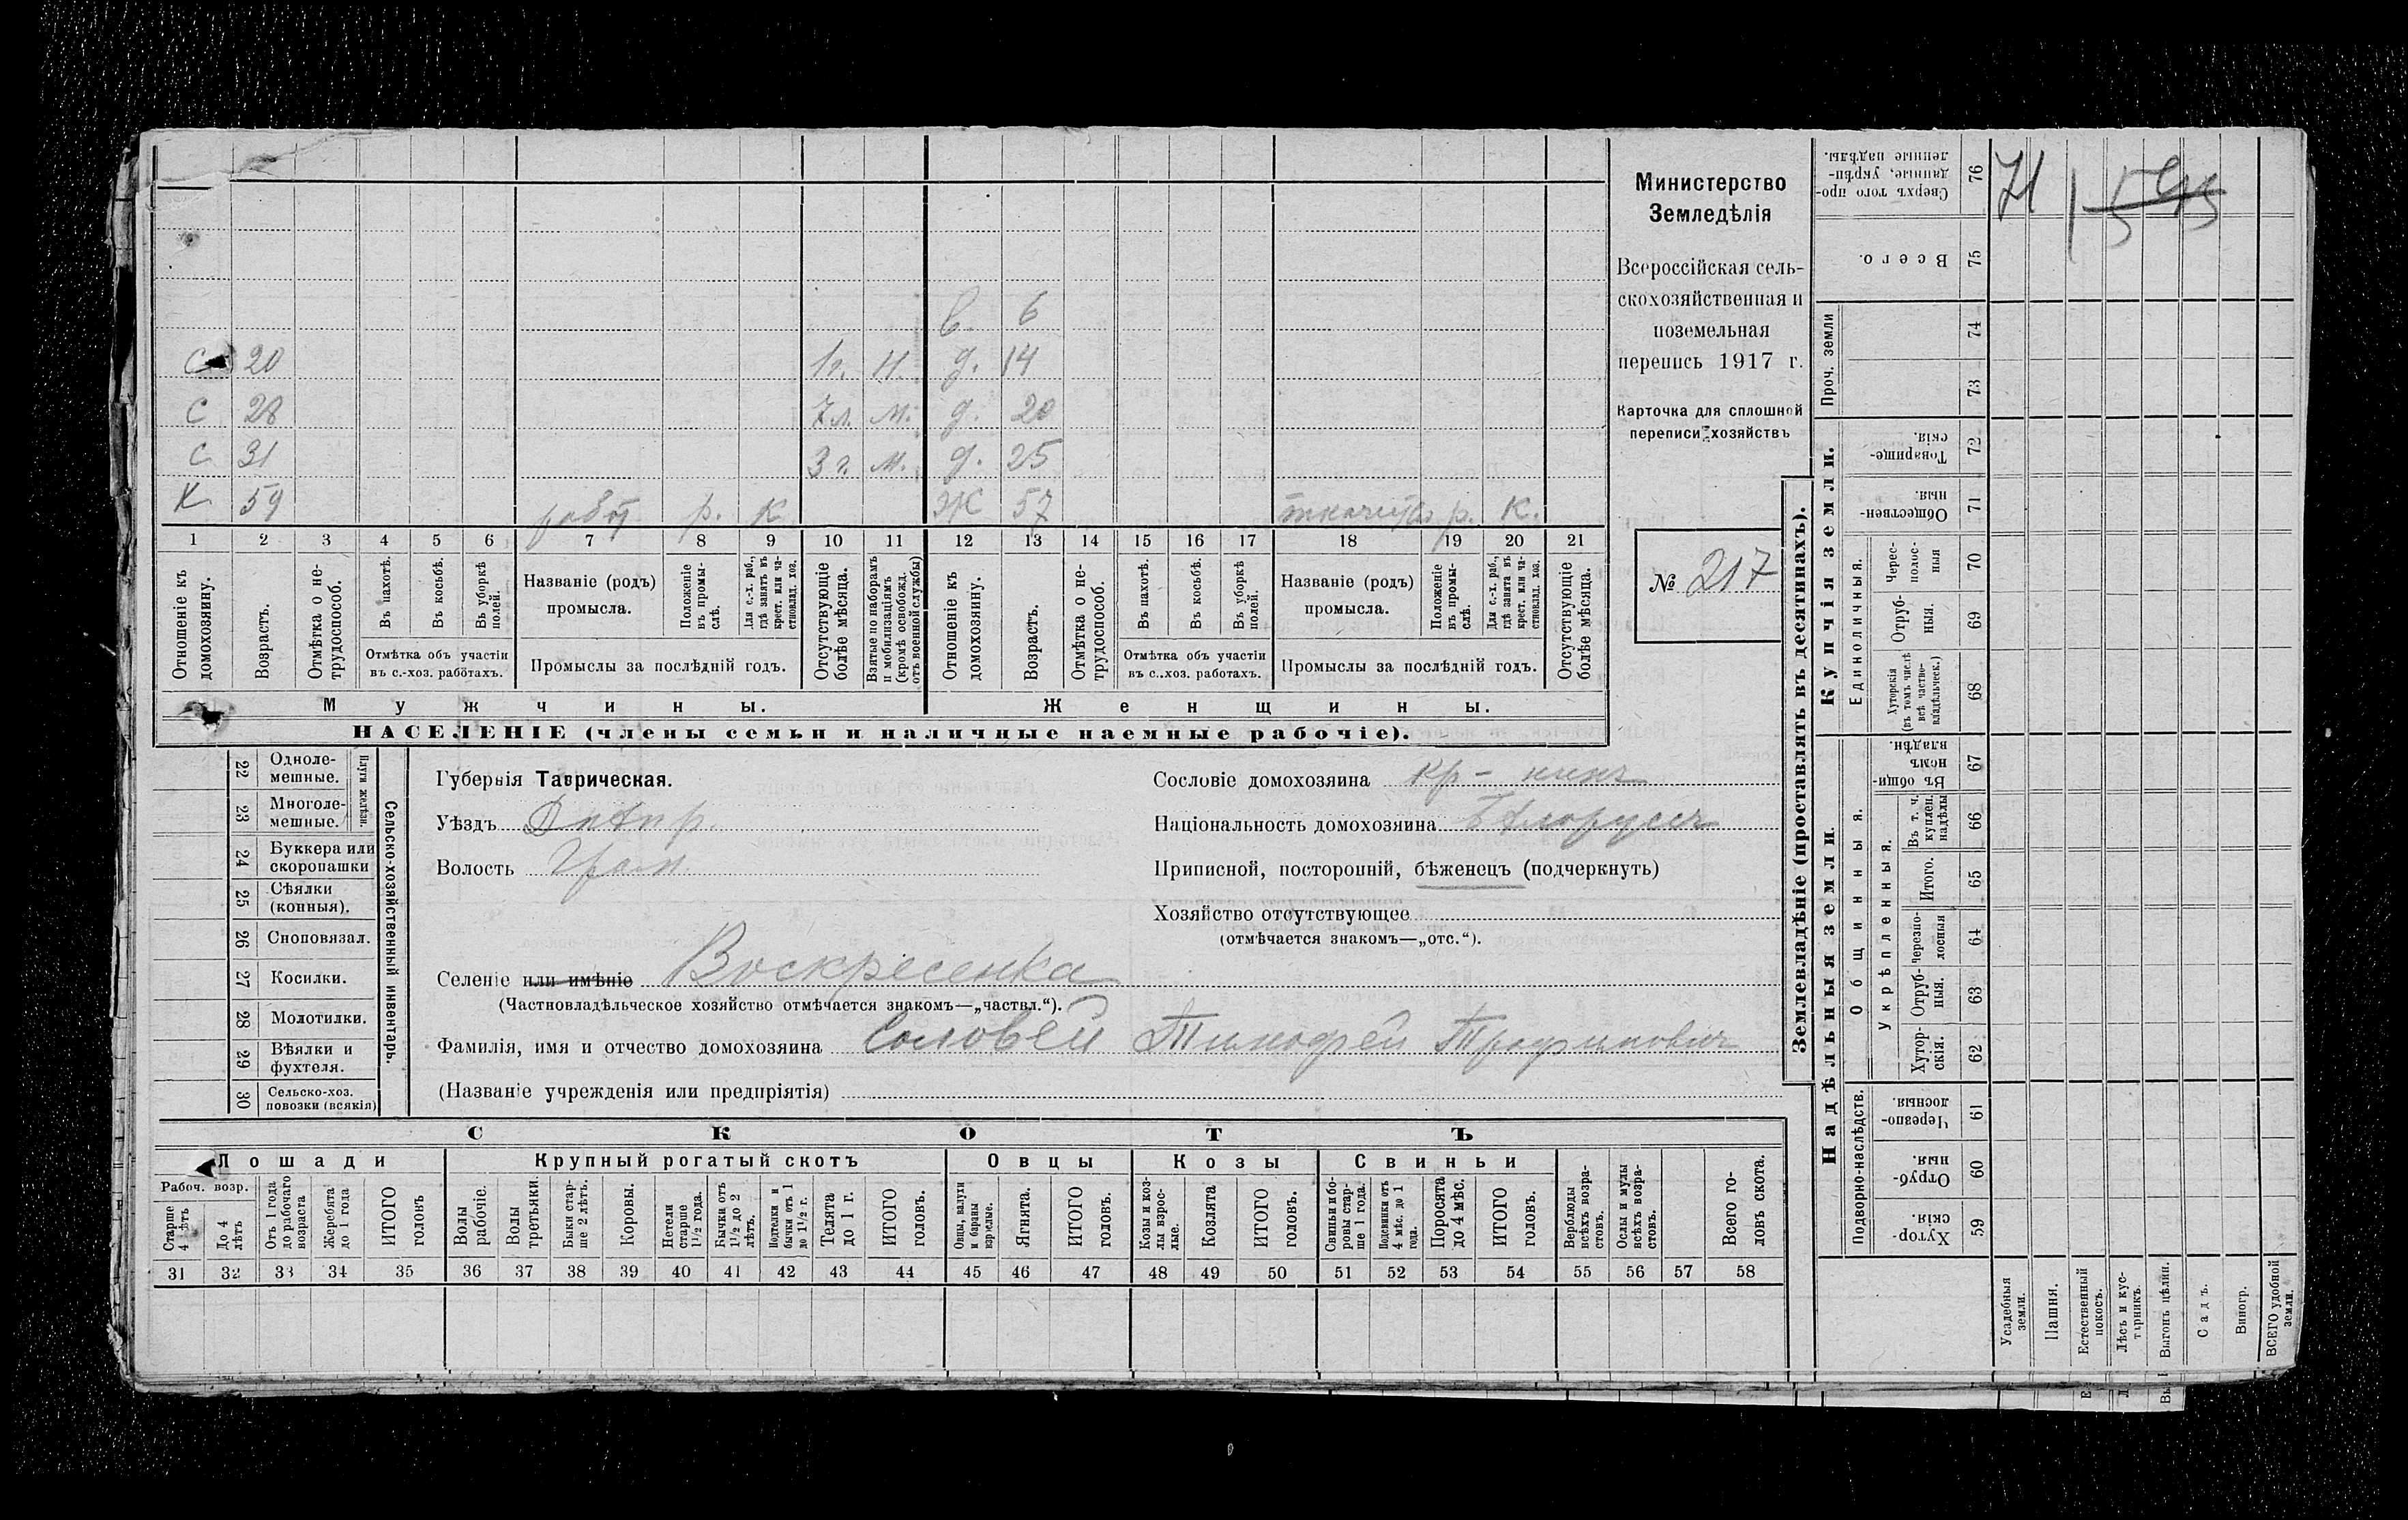 С 20 1 г. н. в. 6
д. 14
С 28 7 л. м. д. 20
С 31 3 г. м. д. 25
К 59 р. К Ж 57 р. К.
1 2 3 4 5 6 7 8 9 10 11 12 13 14 15 16 17 18 19 20 21
Отношеніе къ домохозяину.
Возрастъ.
Отмѣтка о не-трудоспособ.
Въ пахотѣ.
Въ косьбѣ.
Въ уборкѣ полей.
Отмѣтка объ участіи
въ с.-хоз. работахъ.
Названіе (родъ)
промысла.
Положеніе въ промы-слѣ.
Для с.-х. раб., гдѣ занятъ въ крест. или ча-стновлад. хоз.
Промыслы за послѣдній годъ.
Отсутствующіе болѣе мѣсяца.
Взятые по наборамъ и мобилизаціямъ (кромѣ освобожд. отъ военной службы)
Отношеніе къ домохозяину.
Возрастъ.
Отмѣтка о не-трудоспособ.
Въ пахотѣ.
Въ косьбѣ.
Въ уборкѣ полей.
Отмѣтка объ участіи
въ с..хоз. работахъ.
Названіе (родъ)
промысла.
Положеніе въ промы-слѣ.
Для с.-х. раб., гдѣ занята въ крест. или ча-стновлад. хоз.
Промыслы за послѣдній годъ.
Отсутствующіе болѣе мѣсяца.
Мужчины.
Женщины.
НАСЕЛЕНІЕ (члены семьи и наличные наемные рабочіе).
Министерство
Земледѣлія
Всероссійская сель-
скохозяйственная и
поземельная
перепись 1917 г.
Карточка для сплошной
переписи хозяйствъ
№ 217
22 Одноле-мешные.
23 Многоле-мешные.
Плуги желѣзн.
24 Буккера или скоропашки
25 Сѣялки (конныя).
26 Сноповязал.
27 Косилки.
28 Молотилки.
29 Вѣялки и фухтеля.
30 Сельско-хоз. повозки (всякія)
Сельско-хозяйственный инвентарь.
Губернія Таврическая.
Уѣздъ Днѣпр.
Волость
Селеніе или имѣніе Воскресенка
(Частновладѣльческое хозяйство отмѣчается знакомъ—„частвл.“).
Фамилія, имя и отчество домохозяина Соловей Тимофей Трофимович
(Названіе учрежденія или предпріятія)
Сословіе домохозяина кр-нинъ
Національность домохозяина Бѣлоруссъ
Приписной, посторонній, бѣженецъ (подчеркнуть)
Хозяйство отсутствующее
(отмѣчается знакомъ—„отс.“).
СКОТЪ
Лошади
Крупный рогатый скотъ
Овцы
Козы
Свиньи
Рабоч. возр.
Старше 4 лѣтъ
До 4 лѣтъ
Отъ 1 года до рабочаго возраста
Жеребята до 1 года
ИТОГО головъ
Волы рабочіе.
Волы третьяки.
Быки стар-ше 2 лѣтъ.
Коровы.
Нетели старше 1½ года.
Бычки отъ 1½ до 2 лѣтъ.
Подтелки и бычки отъ 1 до 1½ г.
Телята до 1 г.
ИТОГО головъ.
Овцы, валухи и бараны взрослые.
Ягнята.
ИТОГО головъ.
Козы и коз-лы взрос-лые.
Козлята
ИТОГО головъ.
Свиньи и бо-ровы стар-ше 1 года.
Подсвинки отъ 4 мѣс. до 1 года.
Поросята до 4 мѣс.
ИТОГО головъ.
Верблюды всѣхъ возра-стовъ.
Ослы и мулы всѣхъ возра-стовъ.
Всего го-ловъ скота.
31 32 33 34 35 36 37 38 39 40 41 42 43 44 45 46 47 48 49 50 51 52 53 54 55 56 57 58
Землевладѣніе (проставлять въ десятинахъ).
Надѣльныя земли.
Купчія земли.
Проч. земли
Сверхъ того про-данные, укрѣп-ленные надѣлы. 76
Всего. 75
74
73
Товарище-скія. 72
Обществен-ныя. 71
Единоличныя.
Черес-полос-ныя 70
Отруб-ныя. 69
Хуторскія (въ томъ числѣ всѣ частно-владѣльческ.) 68
Общинныя.
Въ общин-номъ владѣн. 67
Укрѣпленныя.
Въ т. ч. куплен. надѣлы 66
Итого. 65
Черезпо-лосныя 64
Отруб-ныя. 63
Хутор-скія. 62
Подворно-наслѣдств.
Черезпо-лосныя. 61
Отруб-ныя. 60
Хутор-скія. 59
Усадебныя земли.
Пашня.
Естественный покосъ.
Лѣсъ и кус-тарникъ.
Выгонъ цѣлин.
Садъ.
Виногр.
ВСЕГО удобной земли.